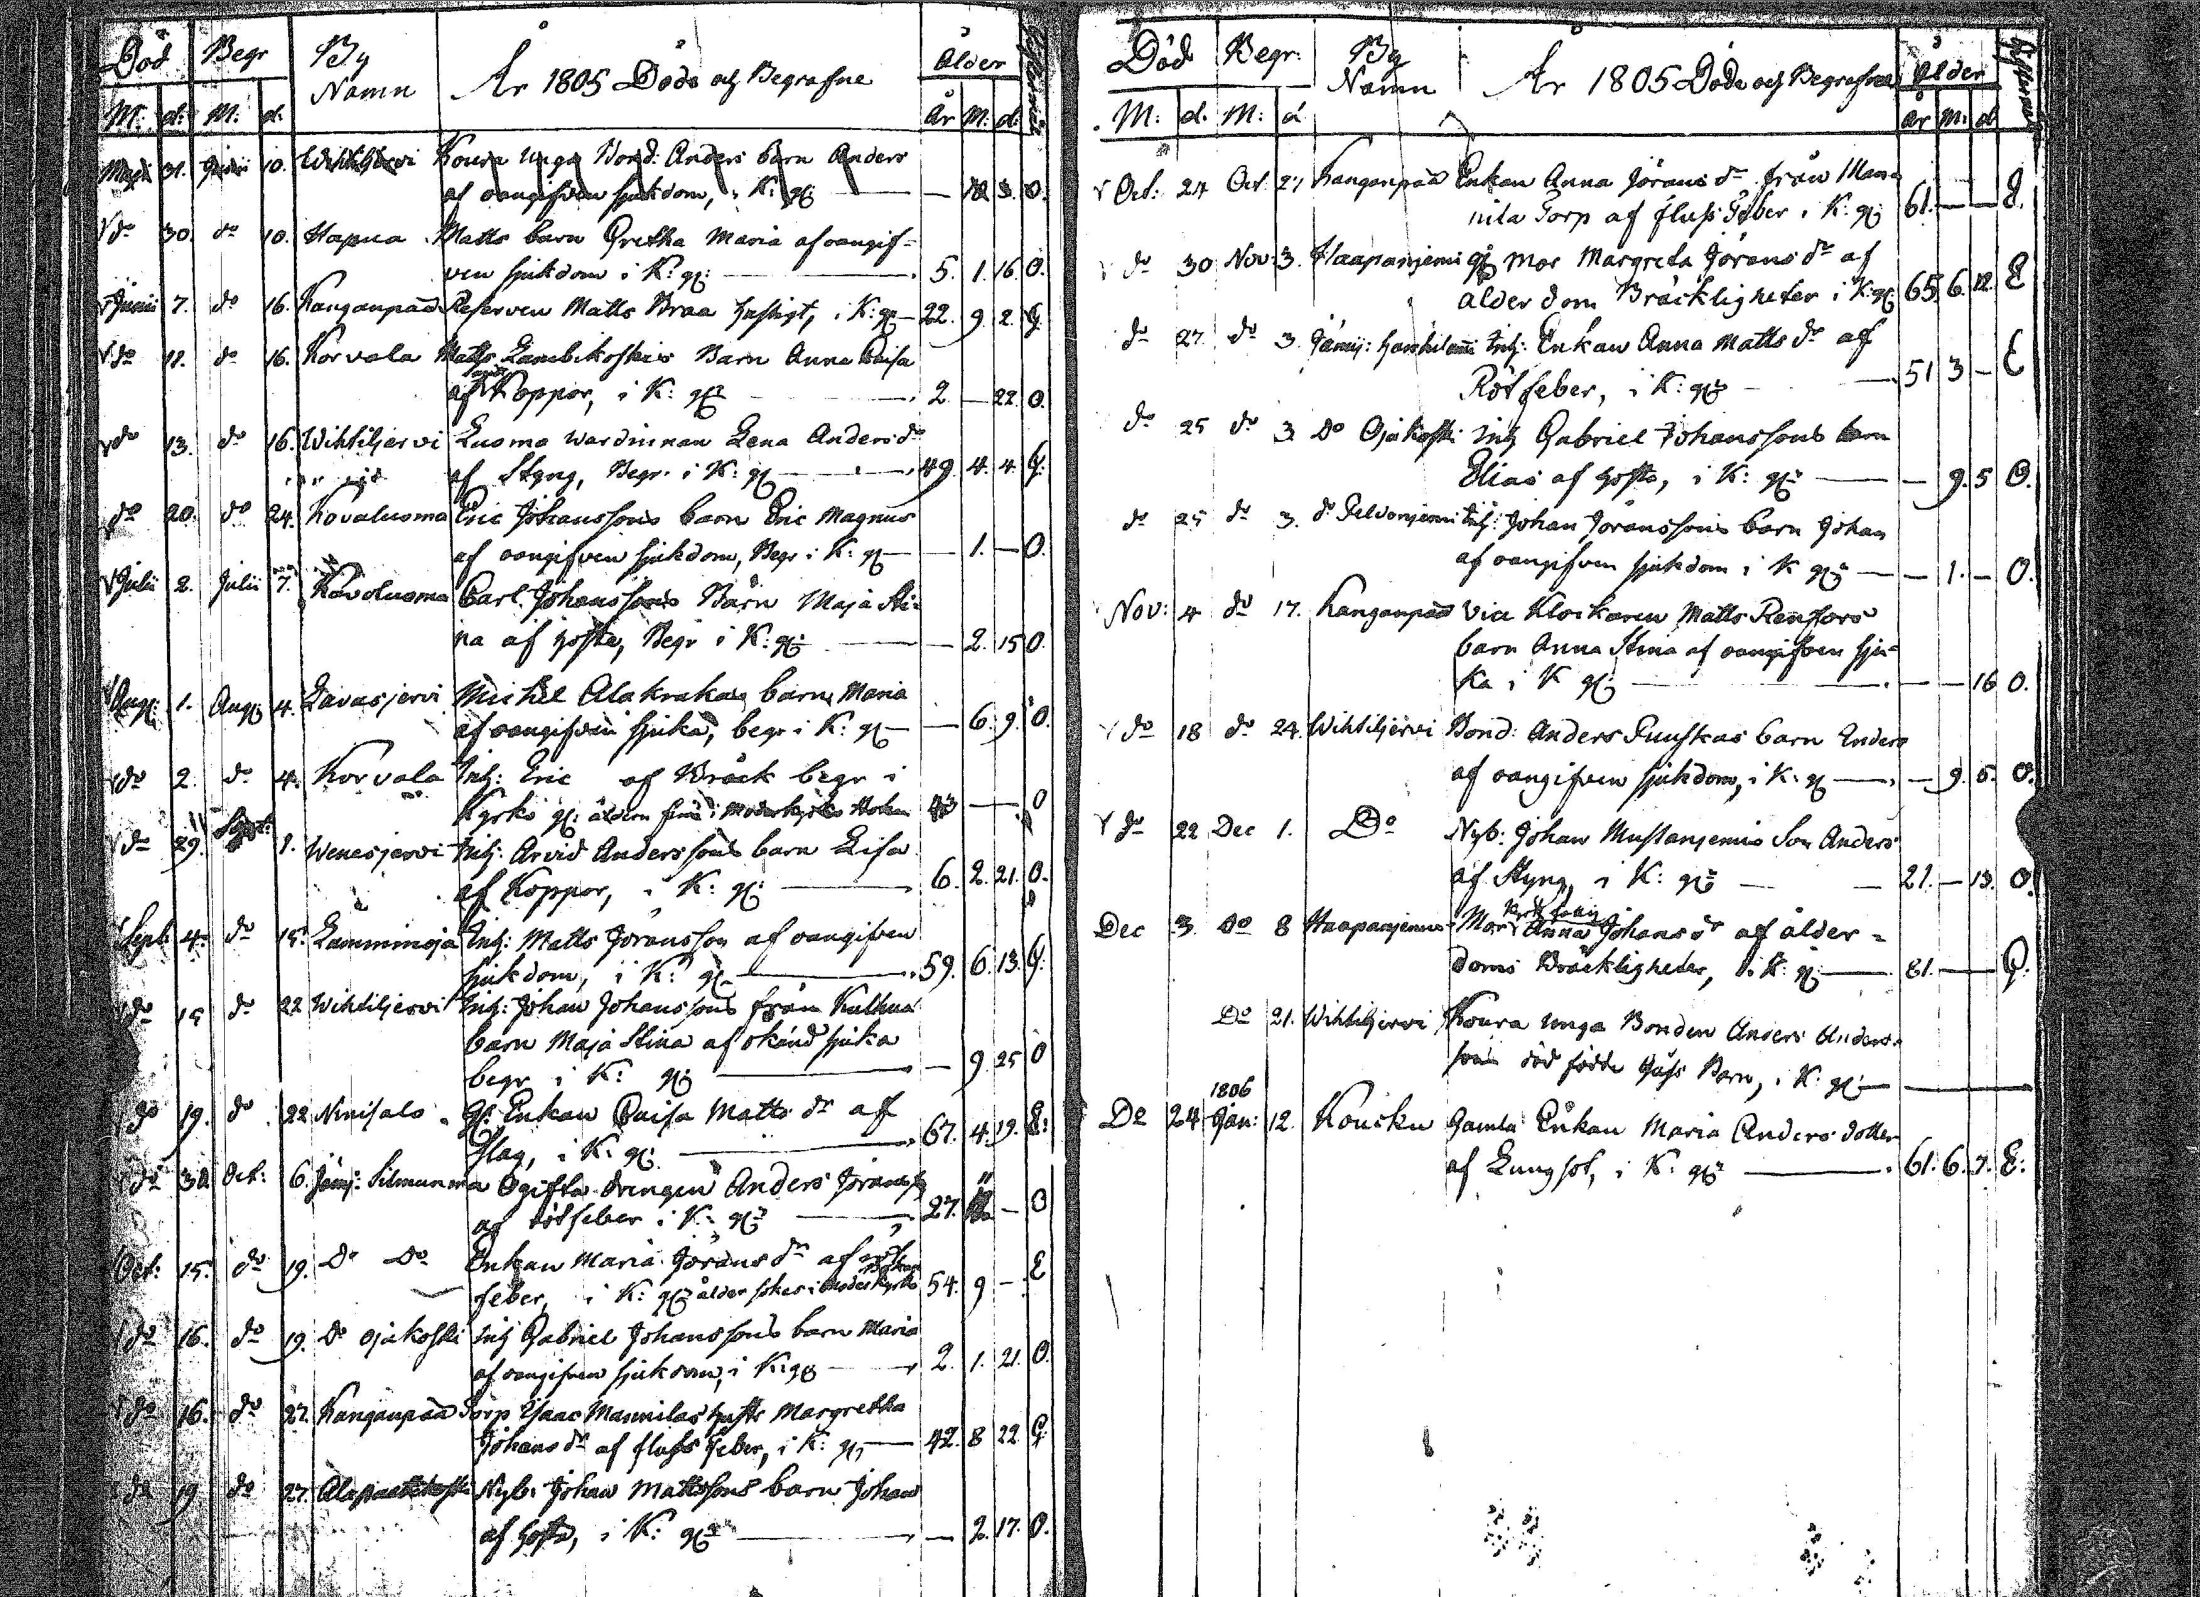 Död Begr By Namn År 1805 Döde och Begrafne Ålder
M: d: M: d. År M: d.
Maji 31. Junii 10. Wihtiljervi Koura Unga Bond: Anders barn Anders
af oangifven sjukdom, i K: g: — 10. 3. O.
do 30. do 10. Hapua Matts barn Gretha Maria af oangif-
ven sjukdom i K: g: 5. 1. 16. O.
Junii 7. do 16. Kanganpää Reserven Matts Braa hastigt, i K: g: 22. 9. 2. G.
do 12. do 16. Korvala Matts Lambikoskis Barn Anna Caisa
af Koppor, i K: g: 2 — 22. O.
do 13. do 16. Wihtiljervi Luoma Wärdinnan Lena Anders dr
af Styng, Begr. i K: g: 49. 4. 4. G.
do 20. do 24. Kovaluoma Eric Johanssons barn Eric Magnus
af oangifven sjukdom, Begr i K: g: — 1. — O.
Julii 2. Julii 7. Kovoluoma Carl Johanssons Barn Maja Sti-
na af hosta, Begr i K: g: — 2. 15 O.
Aug: 1. Aug: 4. Lavasjervi Michel Alakrakas barn Maria
af oangifven sjuka, begr i K: g: — 6. 9. O.
do 2. do 4. Korvala Inh: Eric af Bråck begr i
Kyrko g: åldern finnes i Moderkyrko Boken — — O
do 29. Sept: 1. Wenesjervi Inh: Arvid Anderssons barn Lisa
af Koppor, i K: g: 6. 2. 21. O.
Sept: 4. do 15. Lamminoja Inh: Matts Joransson af oangifven
sjukdom, i K: g: 59. 6. 13. G.
do 15 do 22 Wihtiljervi Inh: Johan Johanssons från Kulhua
barn Maja Stina af okänd sjuka
begr i K: g: — 9 25 O
do 19. do 22 Niinisalo Gl: Enkan Caisa Matts dr af
Slag, i K: g: 67. 4. 19. E:
do 30. Oct: 6. Jämj: Silmunma Ogifta drengen Anders Joranss
af rötfeber i K: g: 27. 11 — O
Oct: 15. do 19. Do Do Enkan Maria Jörans dr af röt
feber, i K: g: ålder sökes i Moderkyrko Boken 54. 9 — E
do 16. do 19. Do Ojakoski Inh Gabriel Johanssons barn Maria
af oangifven sjukdom, i K: g: 2. 1. 21. O.
do 16. do 27. Kanganpää Torp Isaac Mannilas hustr Margretha
Johans dr af fluss feber, i K: g: 42. 8 22. G.
do 19 do 27. Nyb: Johan Mattssons barn Johan
af hosta, i K: g: — 2. 17. O.
Död Begr: By Namn År 1805 Döde och Begrafne Ålder
M: d. M: d År M: d
Oct: 24 Oct. 27 Kanganpää Enkan Anna Jörans dr från Man-
nila Torp af fluss Feber i K: g: 61. — — E.
do 30 Nov: 3. Haapanjemi gl Mor Margreta Jörans dr af
ålderdoms Bräckligheter i K: g: 65. 6. 12. E
do 27. do 3. Jämij: Inh: Enkan Anna Matts dr af
Rötfeber, i K: g: 51 3 — E
do 25 do 3 Do Ojakoski Inh Gabriel Johanssons barn
Elias af hosta, i K: g: — 9. 5 O.
do 25 do 3. do Pelvonjemi Inh: Johan Joranssons barn Johan
af oangifven sjukdom i K g: — 1. — O.
Nov: 4 do 17. Kanganpää Vice Klockaren Matts Renfors
barn Anna Stina af oangifven sju-
ka i K g: — — 16 O.
do 18 do 24. Wihtiljervi Bond: Anders Puuskas barn Anders
af oangifven sjukdom, i K: g: — 9. 5. O.
do 22 Dec 1. Do Nyb: Johan Mustanjemis Son Anders
af Styng, i K: g: 21. — 13. O.
Dec 3. Do 8 Haapanjemi Mor Anna Johans dr af ålder-
doms Bräckligheter, i K: g: 81. — — G.
Do 21. Wihtiljervi Koura Unga Bonden Anders Anders-
sons död födde Barn, i K: g: —
1806
De 24 Jan: 12. Kouckn Gamla Enkan Maria Anders dotter
af Lungsot, i K: g: 61. 6. 7. E.